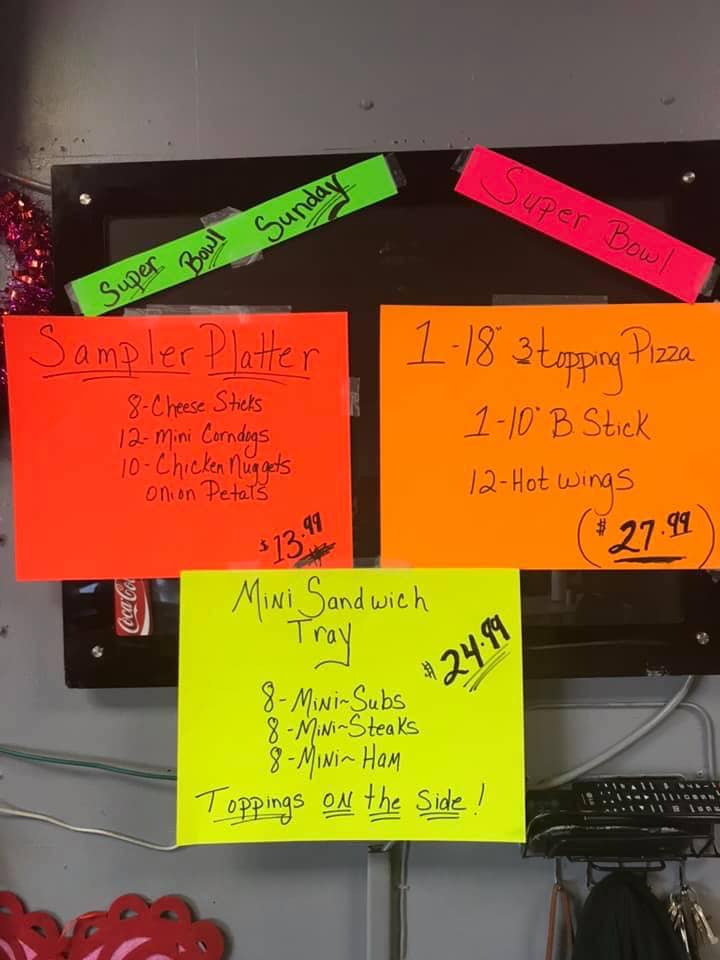 Super Bowl Sunday
Super Bowl
Sampler Platter
8-Cheese Sticks
12-Mini Corndogs
10-Chicken Nuggets
Onion Petals
$13.99
1-18" 3 topping Pizza
1-10" B Stick
12-Hot wings
($27.99)
Mini Sandwich
Tray
$24.99
8-Mini~Subs
8-Mini~Steaks
8-Mini~Ham
Toppings on the Side!
Coca-Cola